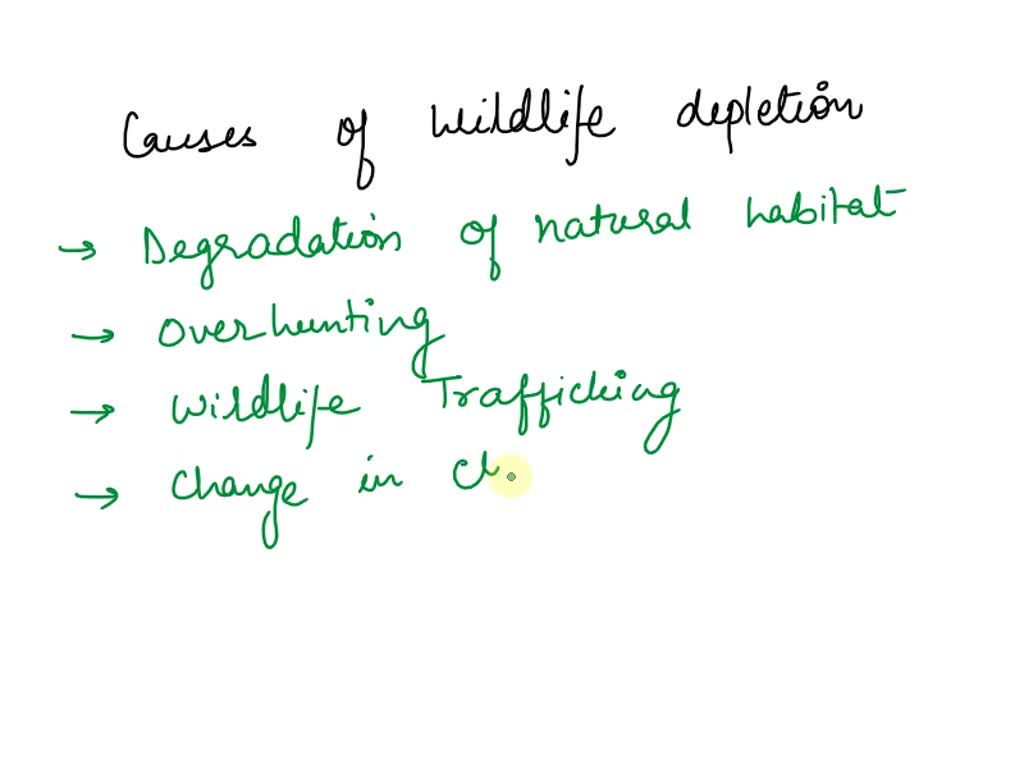 Causes of wildlife depletion
→ Degradation of natural habitat
→ Overhunting
→ Wildlife Trafficking
→ Change in